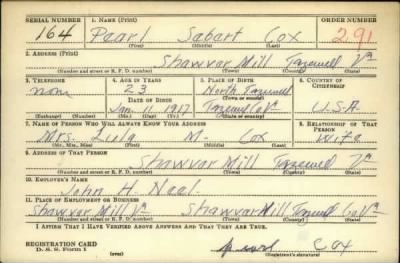 SERIAL NUMBER 1. NAME (Print) ORDER NUMBER
164 Pearl Sabert Cox 291
(First) (Middle) (Last)
2. ADDRESS (Print)
Shawvar Mill Tazewell Va
(Number and street or R. F. D. number) (Town) (County) (State)
3. TELEPHONE 4. AGE IN YEARS 5. PLACE OF BIRTH 6. COUNTRY OF CITIZENSHIP
non 23 North Tazewell
DATE OF BIRTH (Town or county)
Jan. 11 1917 Tazewell Co Va U.S.A.
(Exchange) (Number) (Mo.) (Day) (Yr.) (State or country)
7. NAME OF PERSON WHO WILL ALWAYS KNOW YOUR ADDRESS 8. RELATIONSHIP OF THAT PERSON
Mrs. Lula M. Cox wife
(Mr., Mrs., Miss) (First) (Middle) (Last)
9. ADDRESS OF THAT PERSON
Shawvar Mill Tazewell Va
(Number and street or R. F. D. number) (Town) (County) (State)
10. EMPLOYER'S NAME
John H. Neel
11. PLACE OF EMPLOYMENT OR BUSINESS
Shawvar Mill Va Shawvar Mill Tazewell Co Va
(Number and street or R. F. D. number) (Town) (County) (State)
I AFFIRM THAT I HAVE VERIFIED ABOVE ANSWERS AND THAT THEY ARE TRUE.
REGISTRATION CARD
D. S. S. Form 1 (over) pearl Cox
(Registrant's signature)